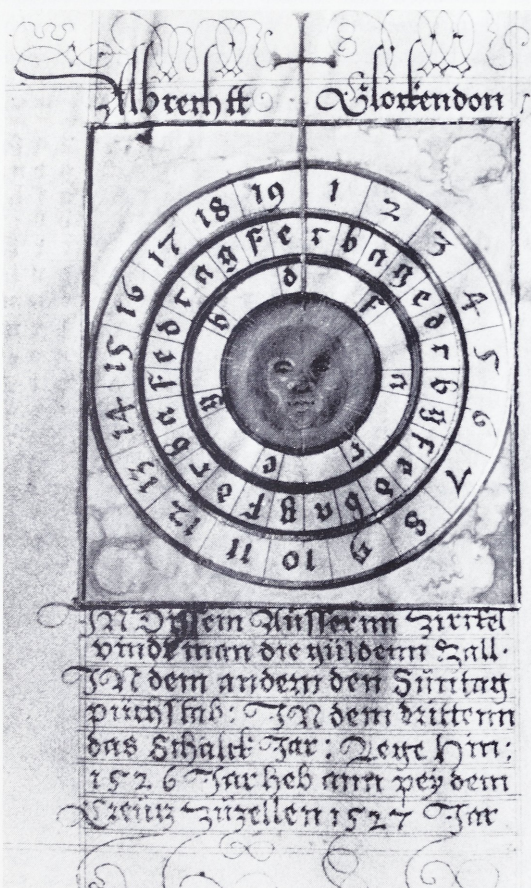 Albrechtt Glockendon
1 2 3 4 5 6 7 8 9 10 11 12 13 14 15 16 17 18 19
c b a g e d c b g f e d b a g f d c b a f e d c a g f e
d f a c e g b
IN Dissem Aüssernn Zirckel
vindt man die güldenn Zall.
IN dem andern den Süntag
püchstab: IN dem drittenn
das Schalck Jar: Lege hin:
1526 Jar heb ann pey dem
Creütz züzellen 1527 Jar